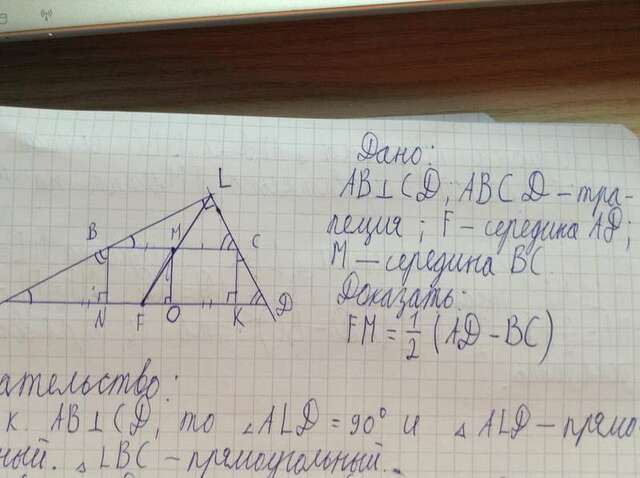 Дано:
AB⊥CD; ABCD – тра-
пеция; F – середина AD;
M – середина BC.
Доказать:
FM = 1/2 (AD – BC)
L
B
M
C
N
F
O
K
D
ательство:
к. AB⊥CD, то ∠ALD = 90° и △ALD – прямо
ный. △LBC – прямоугольный.